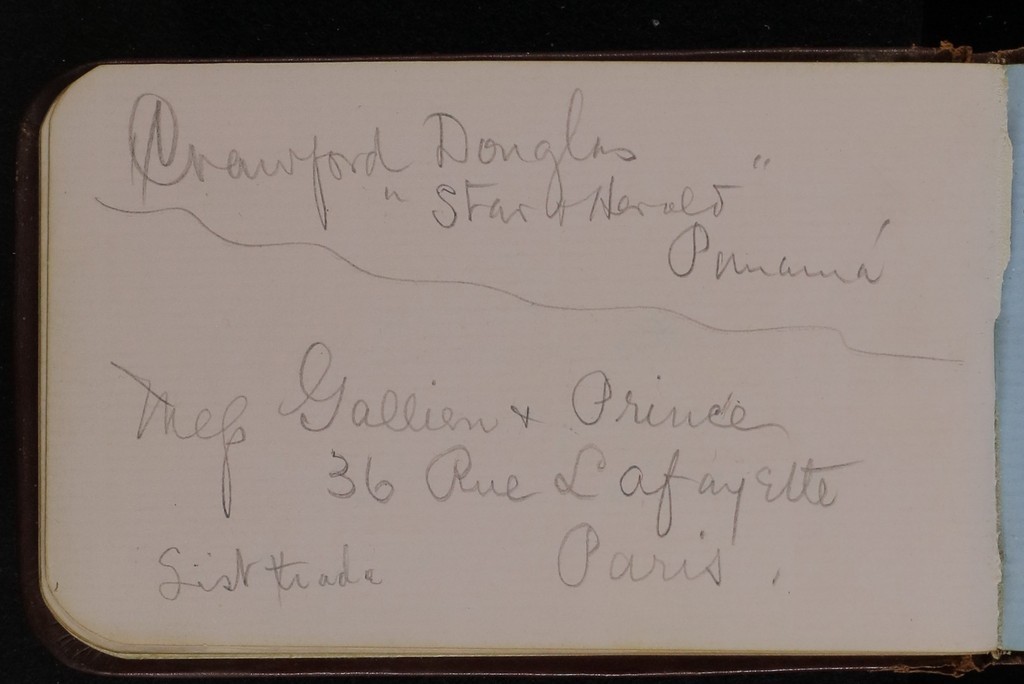 Crawford Douglas
"Star & Herald"
Panamá
Mess Gallien & Prince
36 Rue Lafayette
Paris.
List trade